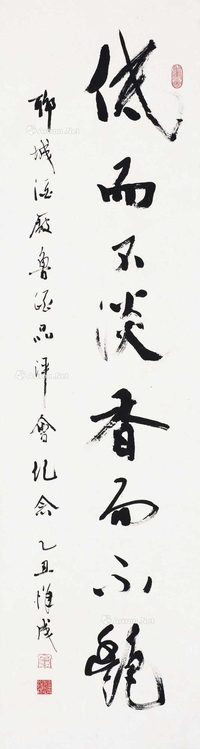 低而不淡香而不艳
聊城酒厰鲁酒品评會纪念 乙丑惟成